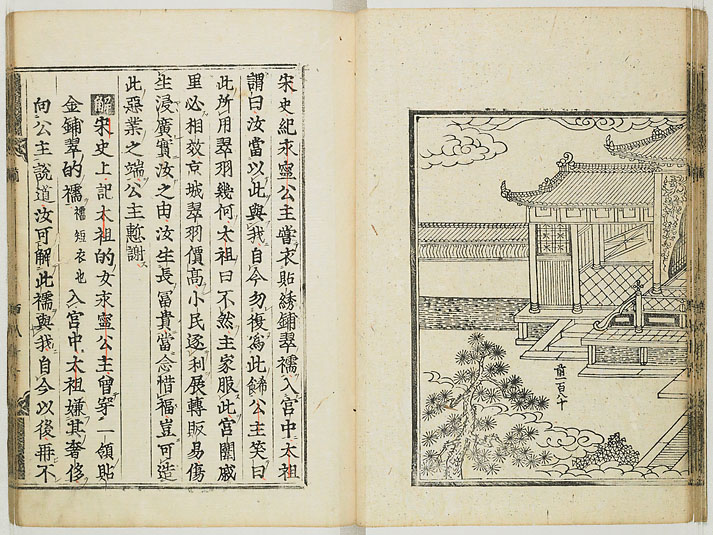 一百八十
宋史紀永寧公主嘗衣貼綉鋪翠襦入宮中太祖
謂曰汝當以此與我自今勿復爲此餙公主笑曰
此所用翠羽幾何太祖曰不然主家服此宮闈戚
里必相效京城翠羽價高小民逐利展轉販易傷
生浸廣實汝之由汝生長富貴當念惜福豈可造
此惡業之端公主慙謝
解宋史上記太祖的女永寧公主曾穿一領貼
金鋪翠的襦襦短衣也入宮中太祖嫌其奢侈
向公主說道汝可解此襦與我自今以後再不